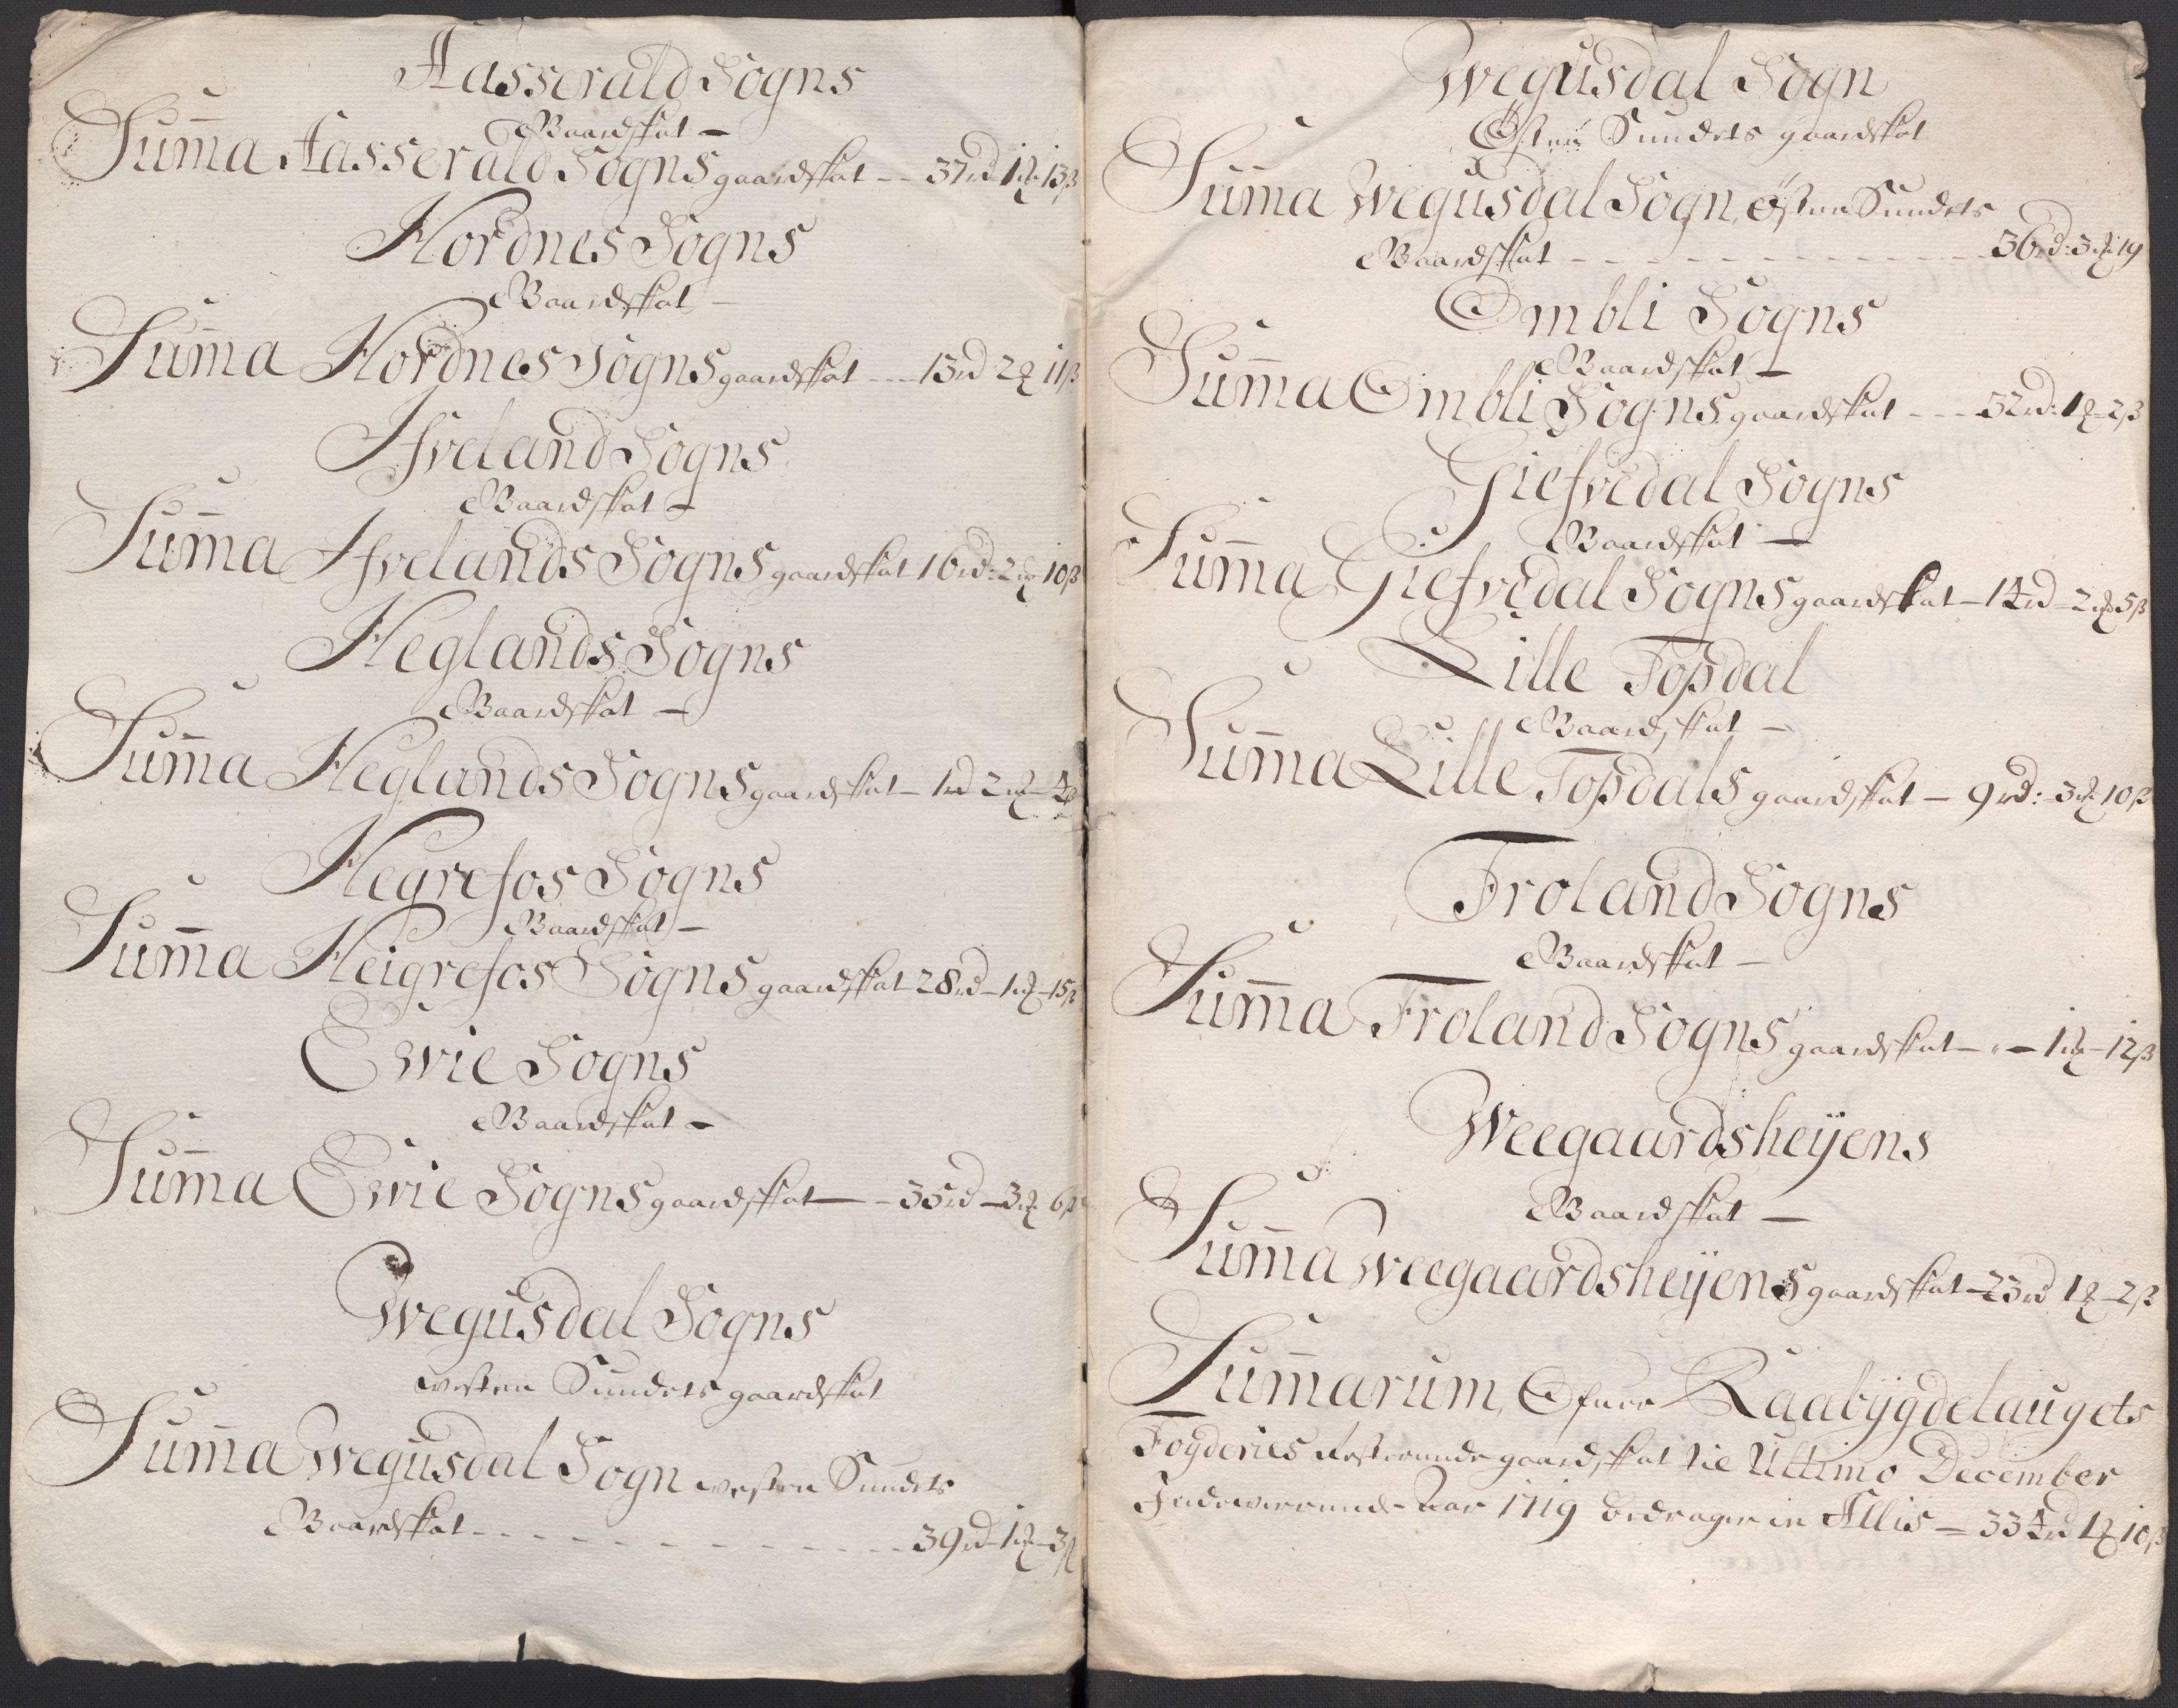 Aasserald Sogns
Gaardskat —
Sum̄a Aasserald Sogns gaardskat - - 37rd 1ꝗ 13ß
Hordnes Sogns
Gaardskat —
Sum̄a Hordnes Sogns gaardskat - - - 13rd 2ꝗ 11ß
Ifveland Sogns
Gaardskat —
Sum̄a Ifvelands Sogns gaardskat 16rd: 2ꝗ 10ß
Heglands Sogns
Gaardskat —
Sum̄a Heglands Sogns gaardskat — 1rd 2ꝗ - 4ß
Hegrefos Sogns
Gaardskat —
Sum̄a Heigrefos Sogns gaardskat 28rd - 1ꝗ - 15ß
Evie Sogns
Gaardskat —
Sum̄a Evie Sogns gaardskat — - 35rd - 3ꝗ 6ß
Wegusdal Sogns
westen Sundets gaardskat
Sum̄a Wegusdal Sogn westen Sundets
Gaardskat - - - - - - - - - - 39rd - 1ꝗ - 3ß
Wegusdal Sogn
Østen Sundets gaardskat
Sum̄a Wegusdal Sogn, østen Sundets
Gaardskat - - - - - - - - - - 36rd: 3ꝗ 19
Ombli Sogns
Gaardskat —
Sum̄a Ombli Sogns gaardskat - - - 52rd: 1ꝗ - 2ß
Giefvedal Sogns
Gaardskat —
Sum̄a Giefvedal Sogns gaardskat — 14rd - 2ꝗ 5ß
Lille Topdal
Gaardskat —
Sum̄a Lille Topdals gaardskat — 9rd: - 3ꝗ 10ß
Froland Sogns
Gaardskat —
Sum̄a Froland Sogns gaardskat - " - 1ꝗ - 12ß
Weegaardsheÿens
Gaardskat —
Sum̄a Weegaardsheÿens gaardskat - 23rd 1ꝗ - 2ß
Sum̄arum, Ofver Raabÿgdelaugets
Fogderies resterende gaardskat til Ultimo December
Indeværende Aar 1719 bedrager in Allis — 334rd 1ꝗ 10ß